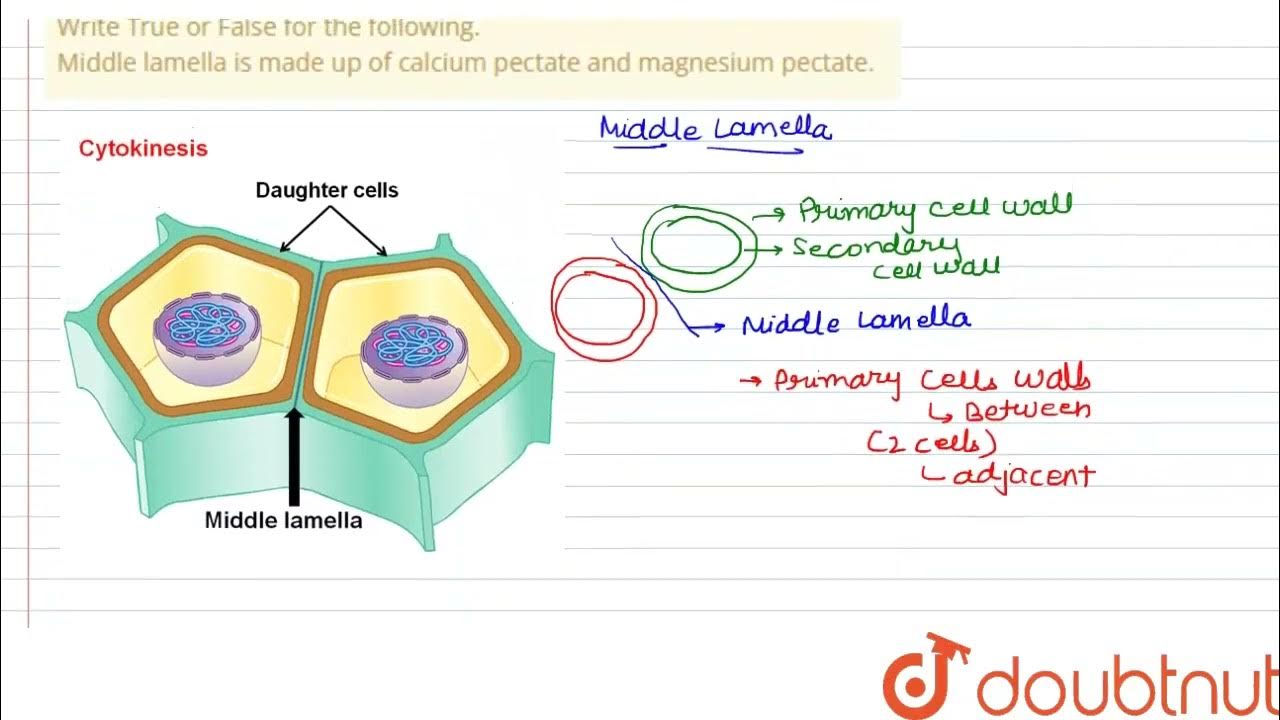 Write True or False for the following.
Middle lamella is made up of calcium pectate and magnesium pectate.
Cytokinesis
Daughter cells
Middle lamella
Middle Lamella
→ Primary cell wall
→ Secondary
cell wall
→ Middle Lamella
→ Primary Cells walls
↳ Between
(2 cells)
↳ adjacent
doubtnut